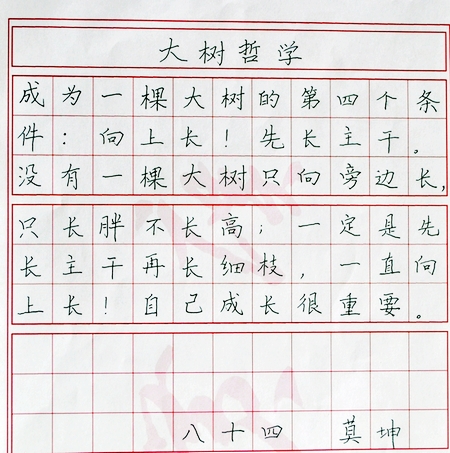 大树哲学
成为一棵大树的第四个条
件：向上长！先长主干。
没有一棵大树只向旁边长，
只长胖不长高；一定是先
长主干再长细枝，一直向
上长！自己成长很重要。
八十四 莫坤